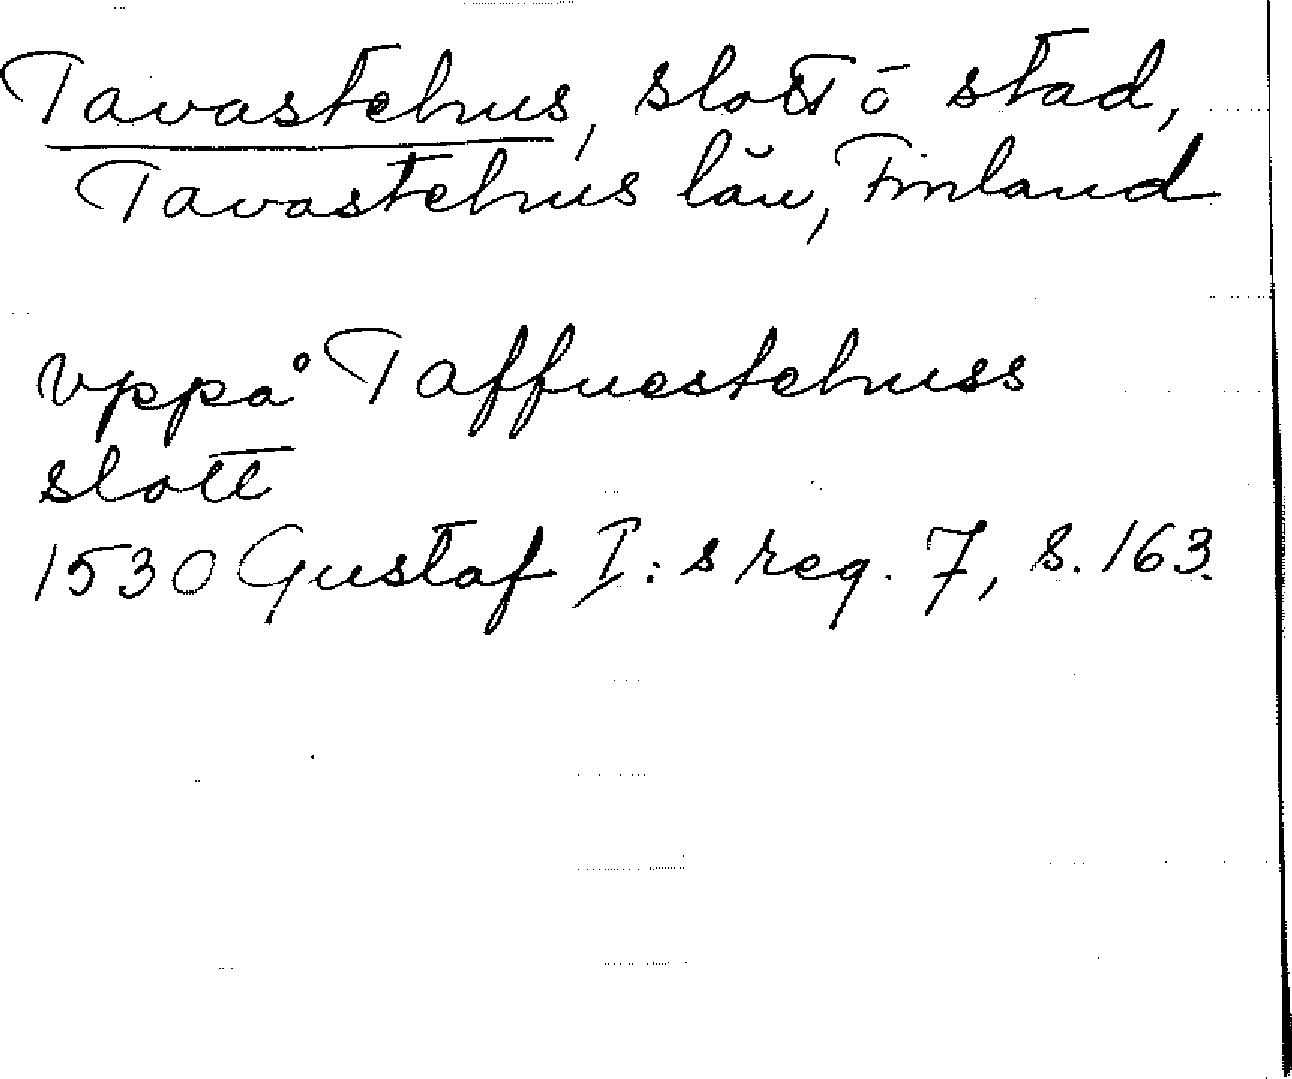 Tavastehus, slott o stad,
Tavastehus län, Finland
Vppå Taffuestehuss
slott
1530 Gustaf I:s reg. 7, s. 163.